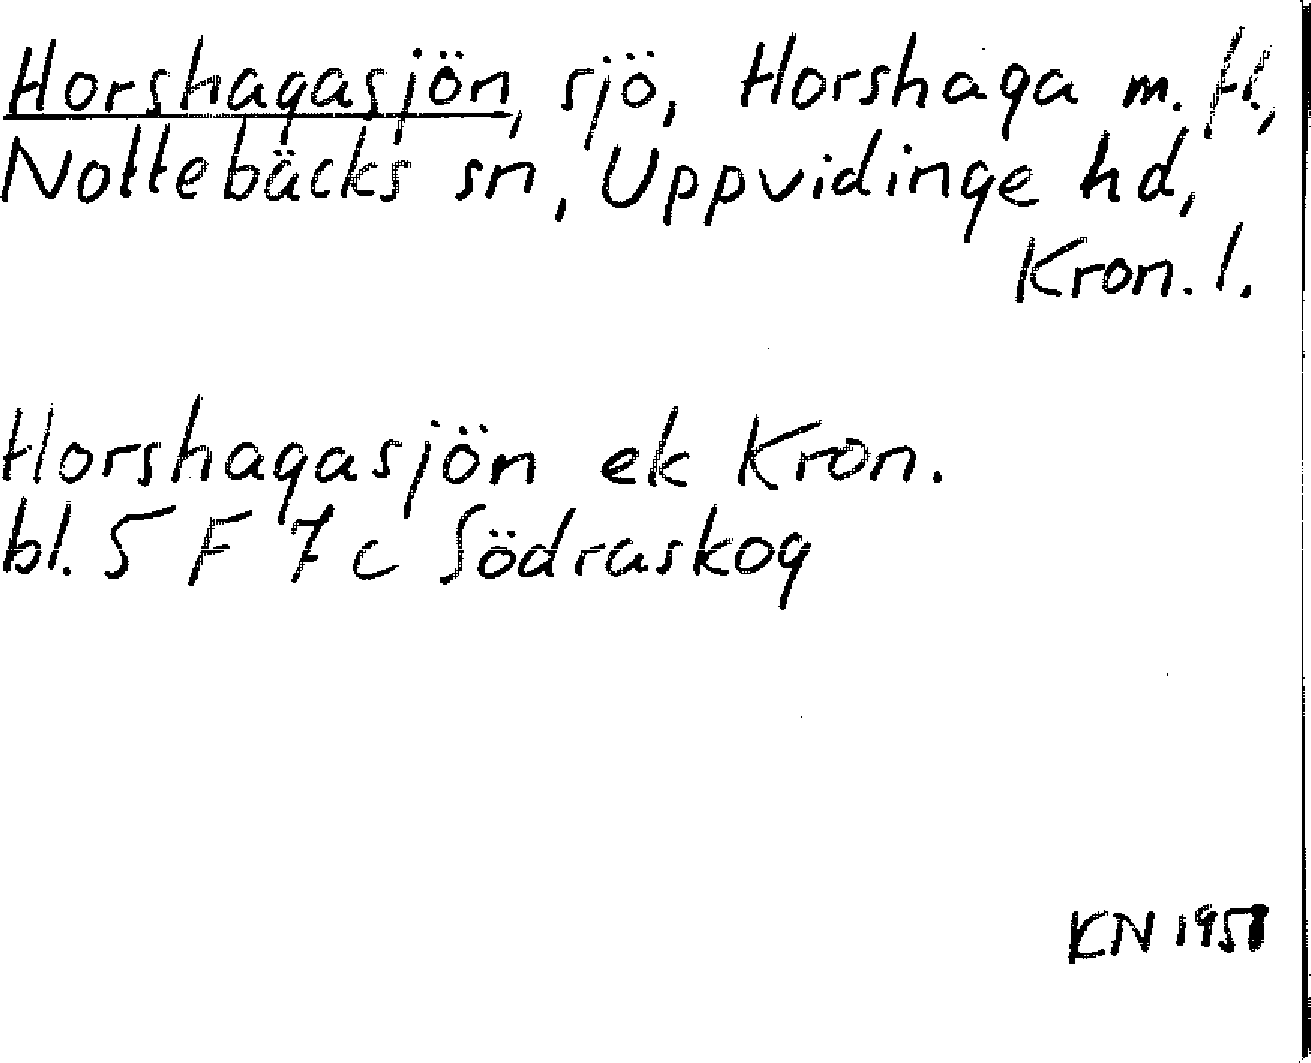 Horshagasjön, sjö, Horshaga m. fl.,
Nottebäcks sn, Uppvidinge hd,
Kron. l.
Horshagasjön ek Kron.
bl. 5 F 7 c Södraskog
KN